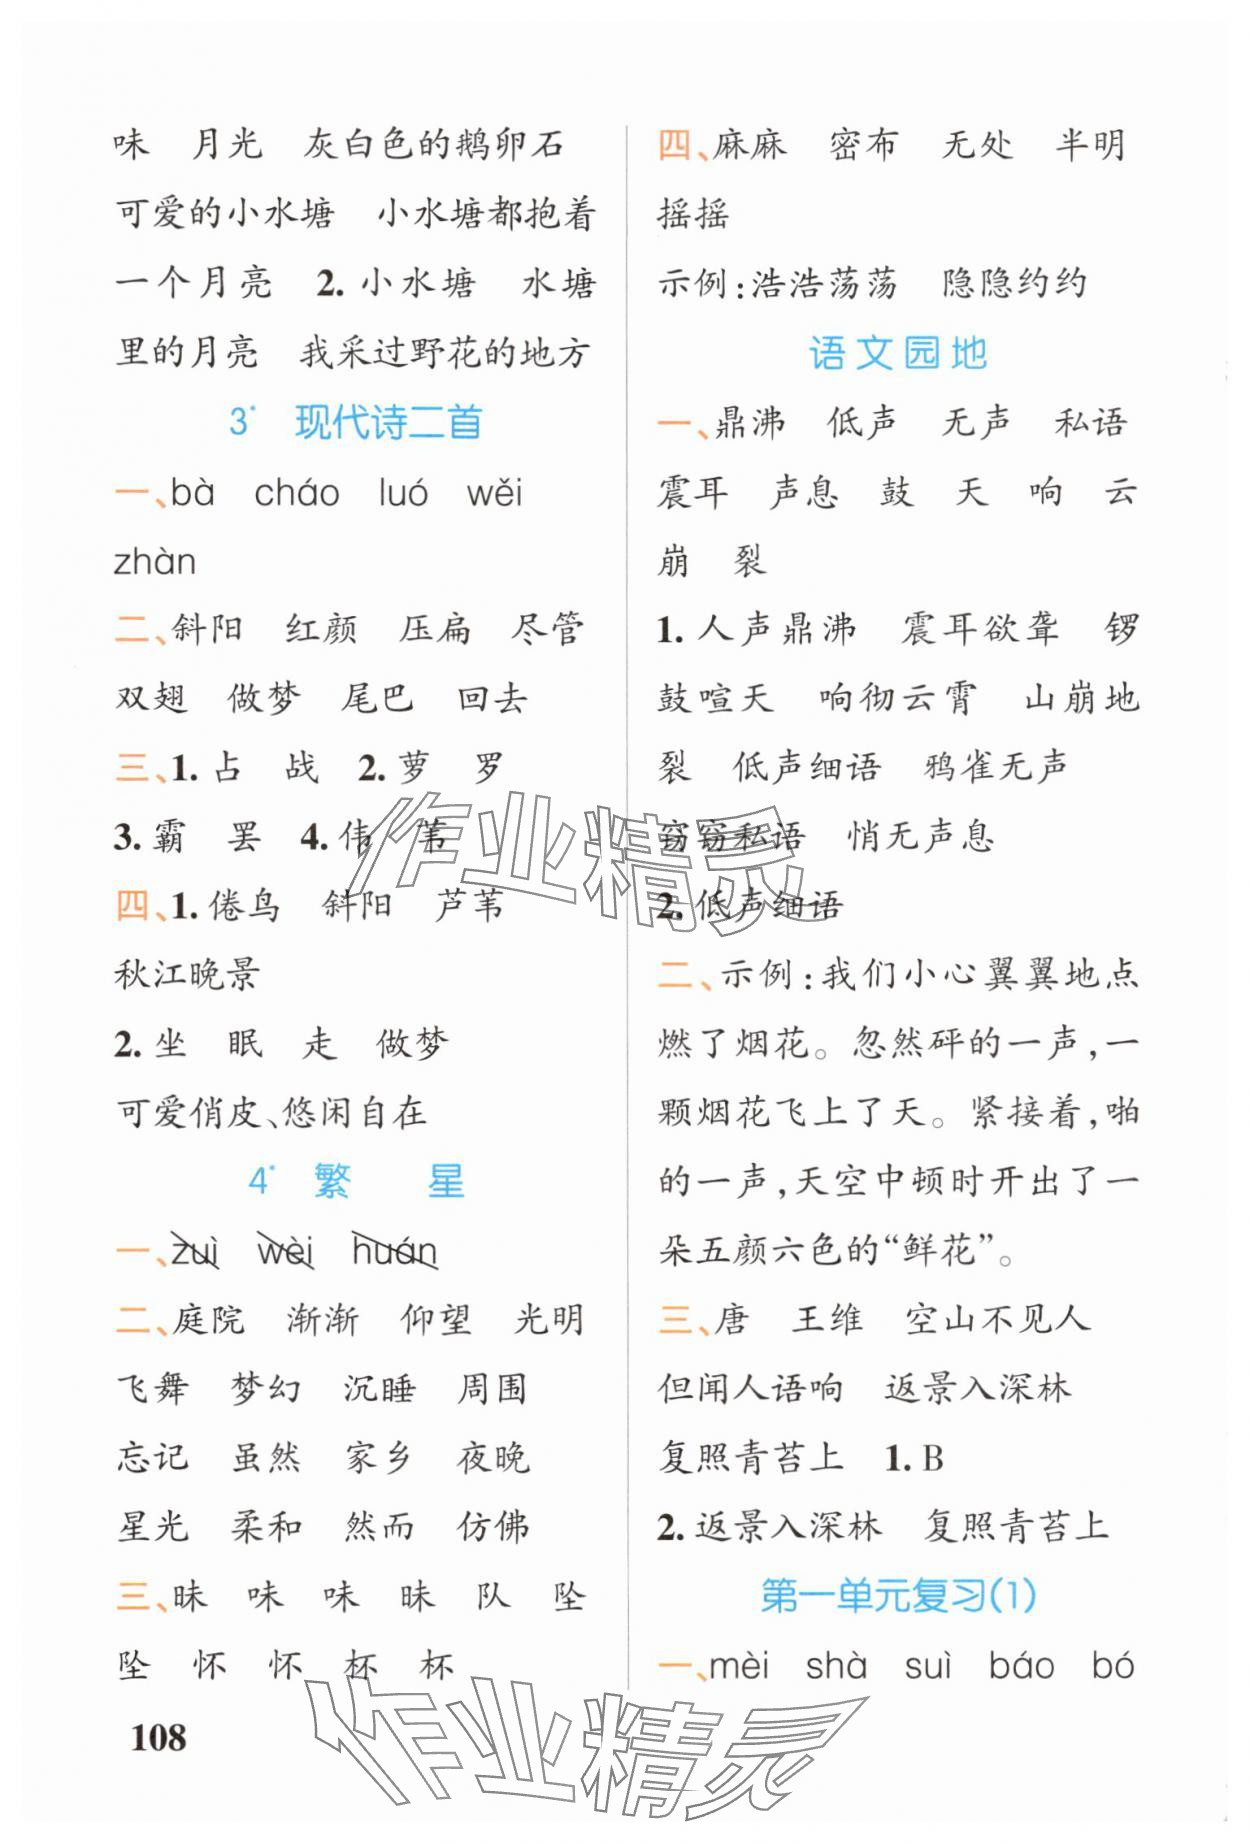 味 月光 灰白色的鹅卵石
可爱的小水塘 小水塘都抱着
一个月亮 2. 小水塘 水塘
里的月亮 我采过野花的地方
3* 现代诗二首
一、bà cháo luó wěi
zhàn
二、斜阳 红颜 压扁 尽管
双翅 做梦 尾巴 回去
三、1. 占 战 2. 萝 罗
3. 霸 罢 4. 伟 苇
四、1. 倦鸟 斜阳 芦苇
秋江晚景
2. 坐 眠 走 做梦
可爱俏皮、悠闲自在
4* 繁 星
一、zuì wèi huán
二、庭院 渐渐 仰望 光明
飞舞 梦幻 沉睡 周围
忘记 虽然 家乡 夜晚
星光 柔和 然而 仿佛
三、昧 味 味 昧 队 坠
坠 怀 怀 杯 杯
108
四、麻麻 密布 无处 半明
摇摇
示例:浩浩荡荡 隐隐约约
语文园地
一、鼎沸 低声 无声 私语
震耳 声息 鼓 天 响 云
崩 裂
1. 人声鼎沸 震耳欲聋 锣
鼓喧天 响彻云霄 山崩地
裂 低声细语 鸦雀无声
窃窃私语 悄无声息
2. 低声细语
二、示例:我们小心翼翼地点
燃了烟花。忽然砰的一声,一
颗烟花飞上了天。紧接着,啪
的一声,天空中顿时开出了一
朵五颜六色的“鲜花”。
三、唐 王维 空山不见人
但闻人语响 返景入深林
复照青苔上 1. B
2. 返景入深林 复照青苔上
第一单元复习(1)
一、mèi shà suì báo bó
作业精灵
作业精灵